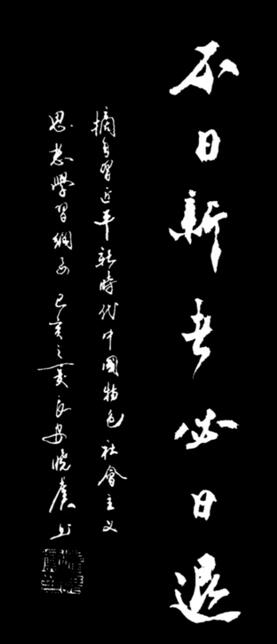 不日新者必日退
摘自習近平新時代中國特色社會主义
思想學習綱要 己亥之夏 良安曉農书